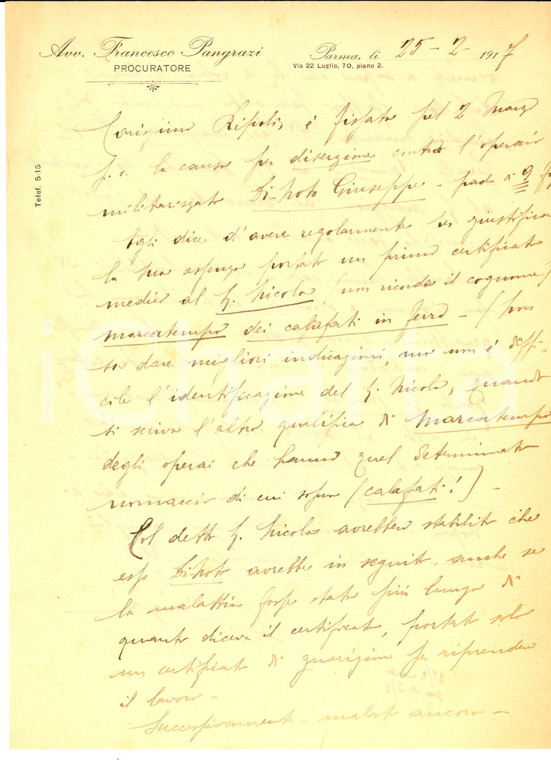 Avv. Francesco Pangrazi
PROCURATORE
Parma, li 25-2-1917
Via 22 Luglio, 70, piano 2.
Telef. 5-15
Carissimo Ripoli, è fissata pel 2 Marzo
la causa per diserzione contro l'operaio
militarizzato Di Noto Giuseppe - padre di 9 figli
Egli dice d'avere regolarmente per giustificare
la sua assenza portato un primo certificato
medico al S. Nicola (non ricorda il cognome)
marcatempo dei calafati in ferro - (non
so dare migliori indicazioni, ma non è diffi-
cile l'identificazione del S. Nicola, quando
ti scrivo l'altra qualifica di marcatempo
degli operai che hanno quel determinato
nomaccio di cui sopra (calafati!) -
Col detto S. Nicola avrebbe stabilito che
esso Di Noto avrebbe in seguito, anche se
la malattia fosse stata più lunga di
quanto diceva il certificato, portato solo
un certificato di guarigione per riprendere
il lavoro -
Successivamente - malato ancora -